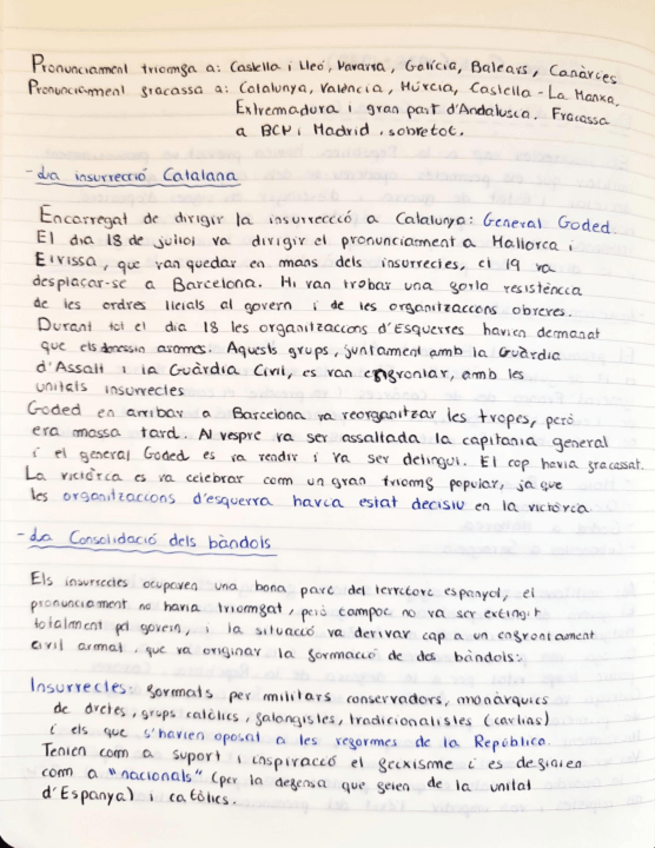 Pronunciament triomfa a: Castella i Lleó, Navarra, Galícia, Balears, Canàries
Pronunciament fracassa a: Catalunya, València, Múrcia, Castella - La Manxa,
Extremadura i gran part d'Andalusia. Fracassa
a BCN i Madrid, sobretot.
- La insurrecció Catalana
Encarregat de dirigir la insurrecció a Catalunya: General Goded.
El dia 18 de juliol va dirigir el pronunciament a Mallorca i
Eivissa, que van quedar en mans dels insurrectes, el 19 va
desplaçar-se a Barcelona. Hi van trobar una forta resistència
de les ordres lleials al govern i de les organitzacions obreres.
Durant tot el dia 18 les organitzacions d'Esquerres havien demanat
que els donessin armes. Aquests grups, juntament amb la Guàrdia
d'Assalt i la Guàrdia Civil, es van enfrontar, amb les
unitats insurrectes
Goded en arribar a Barcelona va reorganitzar les tropes, però
era massa tard. Al vespre va ser assaltada la capitania general
i el general Goded es va rendir i va ser detingut. El cop havia fracassat.
La victòria es va celebrar com un gran triomf popular, ja que
les organitzacions d'esquerra havia estat decisiu en la victòria
- La Consolidació dels bàndols
Els insurrectes ocupaven una bona part del territori espanyol, el
pronunciament no havia triomfat, però tampoc no va ser extingit
totalment pel govern, i la situació va derivar cap a un enfrontament
civil armat, que va originar la formació de dos bàndols:
Insurrectes: formats per militars conservadors, monàrquics
de dretes, grups catòlics, falangistes, tradicionalistes (carlins)
i els que s'havien oposat a les reformes de la República.
Tenien com a suport i inspiració el feixisme i es definien
com a "nacionals" (per la defensa que feien de la unitat
d'Espanya) i catòlics.